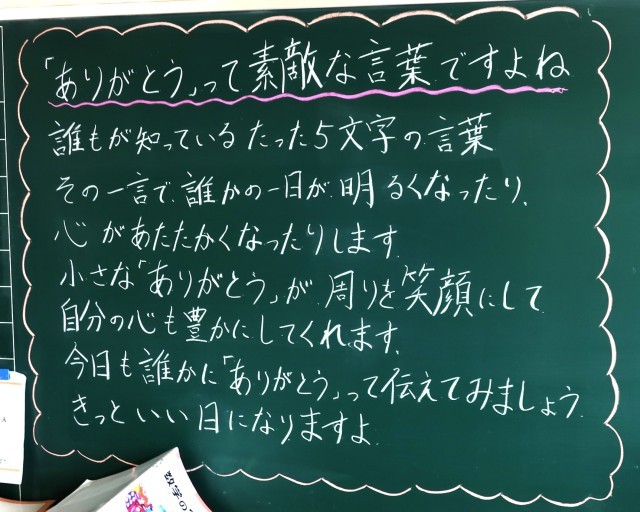 「ありがとう」って素敵な言葉ですよね
誰もが知っているたった5文字の言葉
その一言で、誰かの一日が、明るくなったり、
心があたたかくなったりします。
小さな「ありがとう」が、周りを笑顔にして
自分の心も豊かにしてくれます。
今日も誰かに「ありがとう」って伝えてみましょう。
きっといい日になりますよ。
数学の